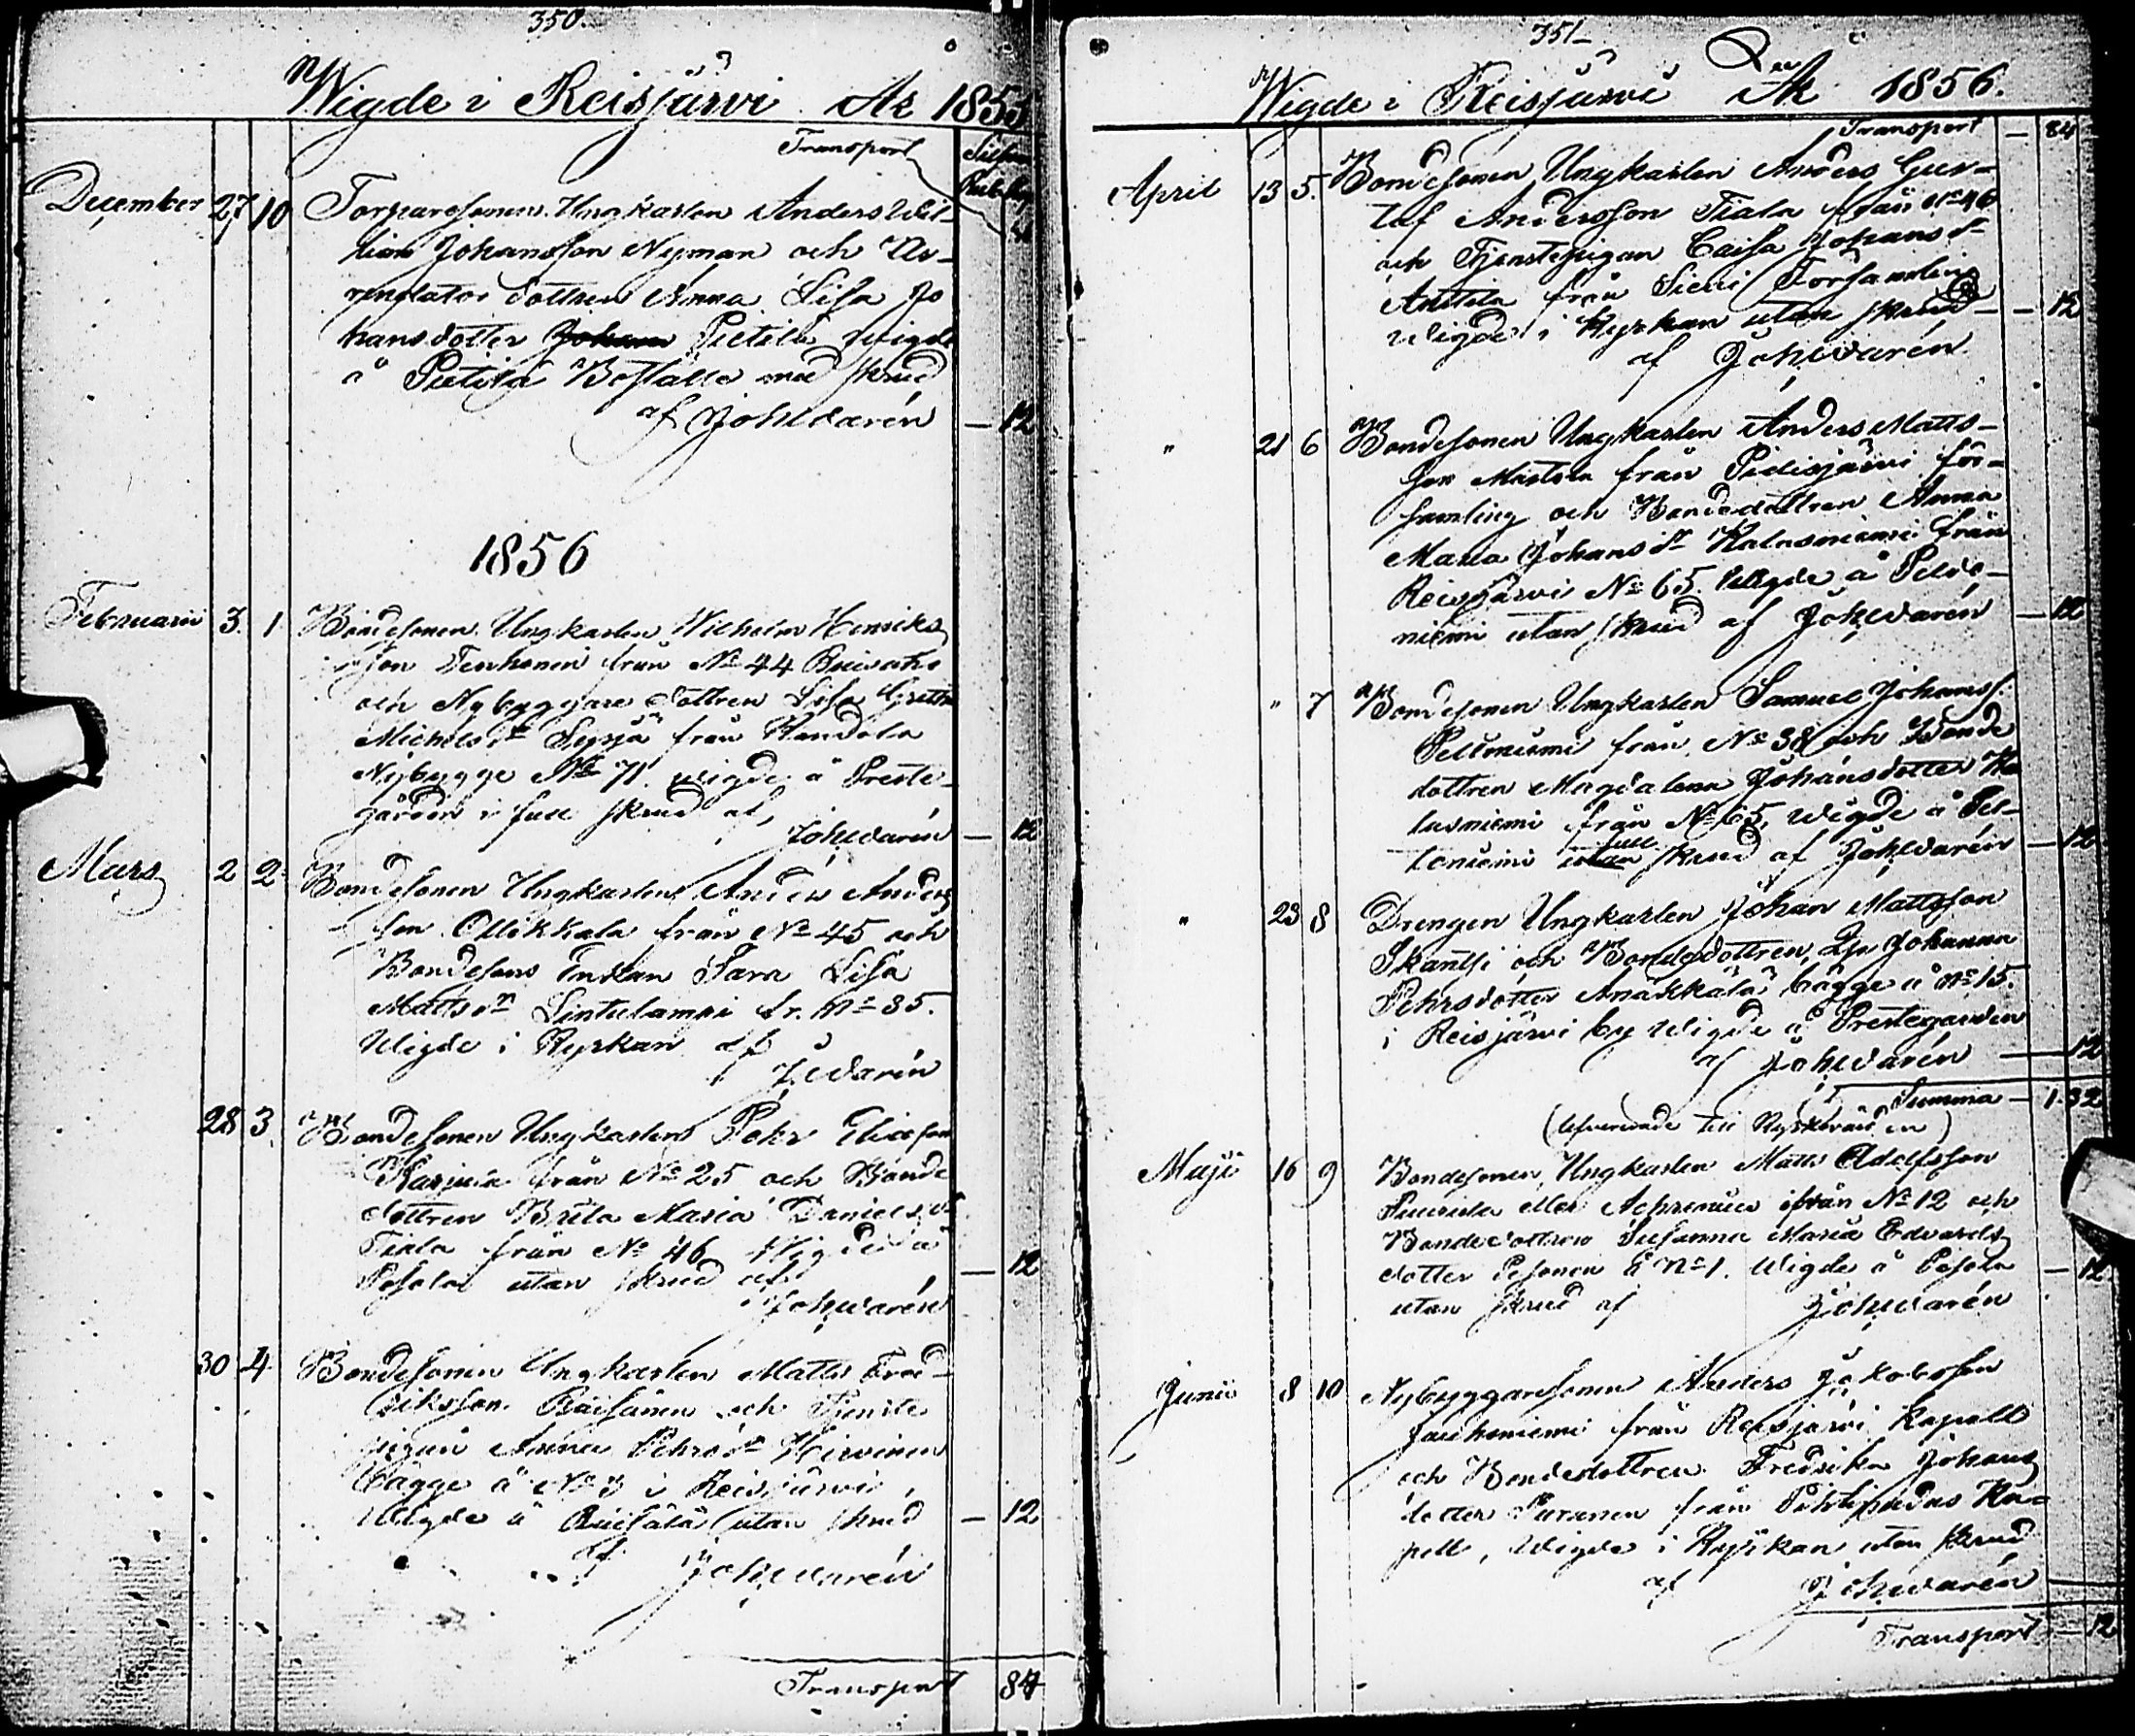 350.
Wigde i Reisjärvi År 1855
Transport
December 27 10 Torparesonen Ungkarlen Anders Wil-
helm Johansson Nyman och Ar-
rendator dottren Anna Lisa Jo
hansdotter Johan Pietilä wigde
å Pietilä Boställe med skrud
af Joh Warén — 12
1856
Februarii 3. 1 Bondesonen Ungkarlen Wilhelm Henriks
son Tenhonen från No 44
och Nybyggare dottren Lisa Greta
Michelsdr Syrjä från Kandola
Nybygge No 71. wigde å Preste-
gården i full skrud af
Joh Warén — 12
Mars 2 2 Bondesonen Ungkarlen Anders Anders
son Ollikkala från No 45 och
Bondesons Enkan Sara Lisa
Mattsdr Lintulampi fr. No 35.
Wigde i Kyrkan af
J. Warén
28 3. Bondesonen Ungkarlen Pehr Eliasson
Karjula från No 25 och Bonde
dottren Brita Maria Danielsdr
Tiala från No 46 Wigde å
Pesola utan skrud af — 12
Joh Warén
30 4. Bondesonen Ungkarlen Matts Fred-
riksson Räisänen och Tjenste
pigan Anna Pehrsdr Hirvinen
bägge å No 3 i Reisjärvi
Wigde å Räisälä utan skrud — 12
af Joh Warén
Transport 84
351
Wigde i Reisjärvi År 1856.
Transport — 84
April 13 5. Bondesonen Ungkarlen Anders Gus-
taf Andersson Tiala från No 46
och Tjenstepigan Caisa Johansdr
Anttila från Sievi Församling
Wigde i Kyrkan utan skrud — 12
af Joh Warén
" 21 6 Bondesonen Ungkarlen Anders Matts-
son Mattila från Pidisjärvi för-
samling och Bondedottren Anna
Maria Johansdr Kalasniemi från
Reisjärvi No 65. Wigde å Pelto-
niemi utan skrud af Joh Warén — 12
" 7 Bondesonen Ungkarlen Samuel Johanss.
Peltoniemi från No 38 och Bonde
dottren Magdalena Johansdotter Ka
lasniemi från No 65. Wigde å Pel-
full
toniemi utan skrud af Joh Warén — 12
" 23 8 Drengen Ungkarlen Johan Mattsson
Skantsi och Bondedottren Johanna
Pehrsdotter Anäkkälä bägge å No 15.
i Reisjärvi by Wigde å Prestegården
af Joh Warén — 12
Summa — 1.32
(lefvererade till Kyrkovärden)
Maji 16 9 Bondesonen Ungkarlen Matts Adolfsson
eller från No 12 och
Bondedottren Susanna Maria Edvards
dotter Pesonen å No 1. Wigde å Pesola — 12
utan skrud af Joh Warén
Junii 8 10 Nybyggaresonen Anders Jakobsson
Jauhoniemi från Reisjärvi Kapell
och Bondedottren Fredrika Johans
dotter Puranen från Pihtipudas Ka-
pell, Wigde i Kyrkan utan skrud
af Joh Warén
Transport — 12